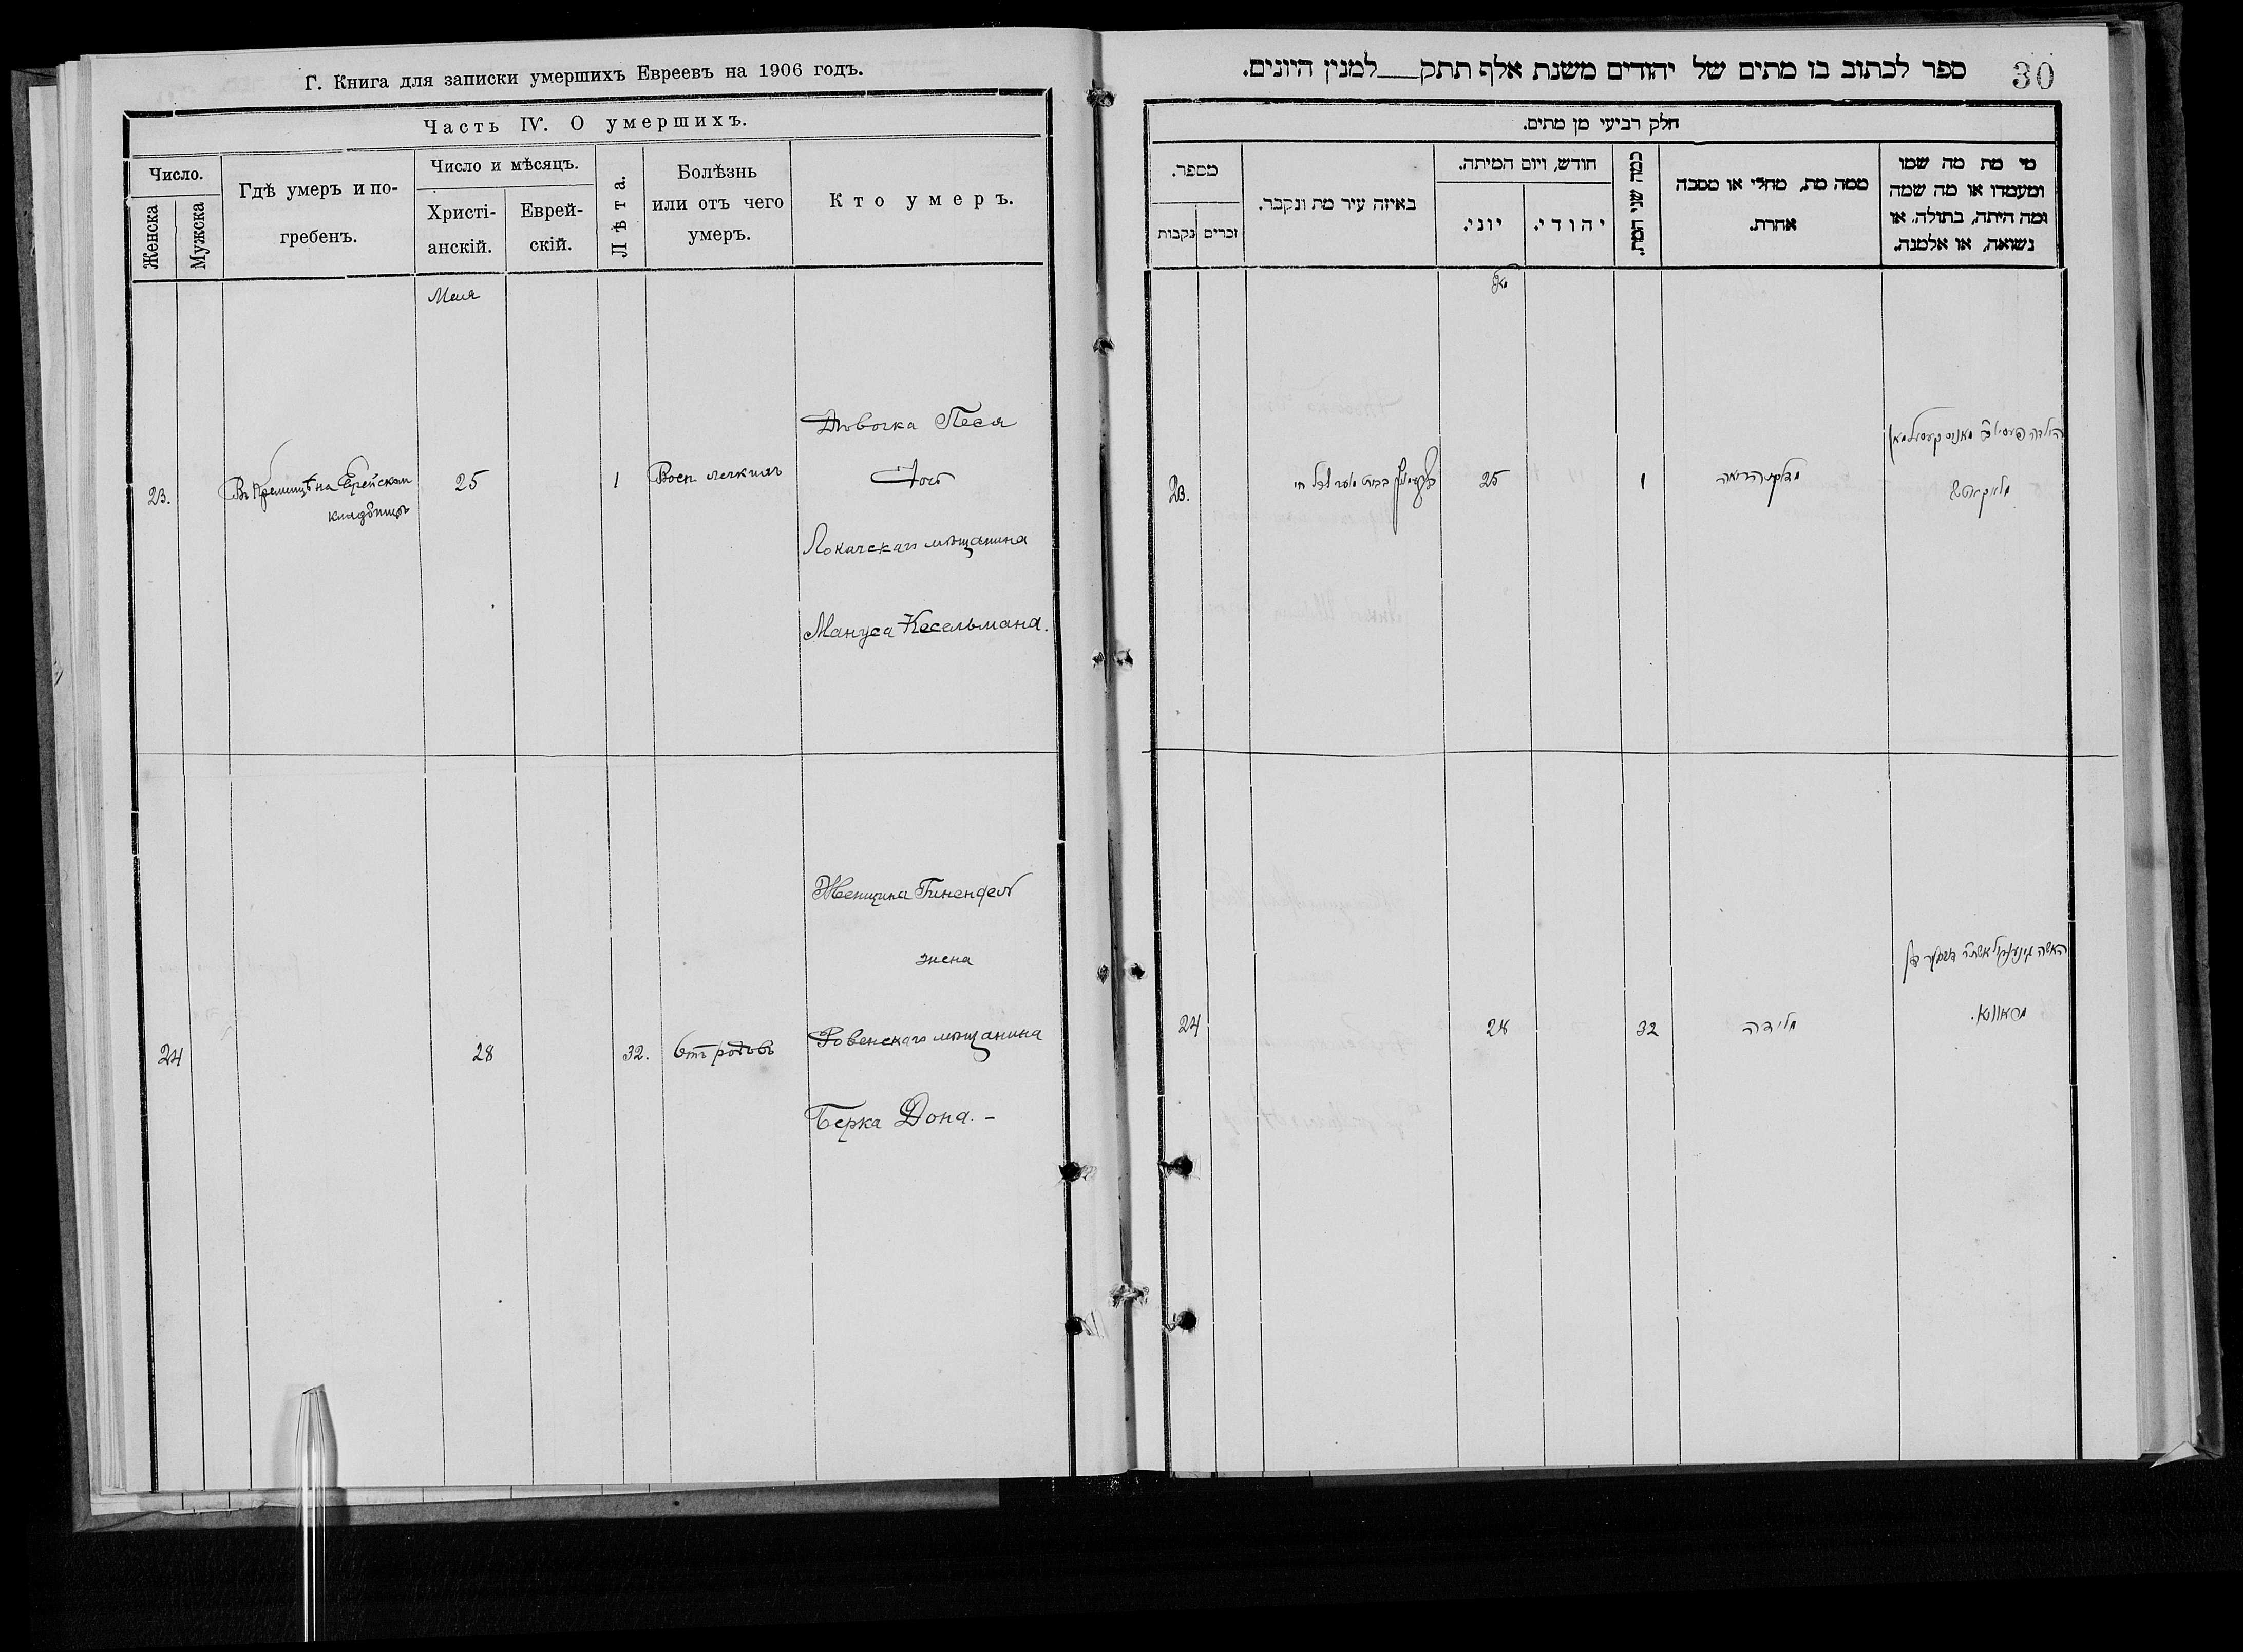 Г. Книга для записки умершихъ Евреевъ на 1906 годъ.
Часть IV. О умершихъ.
Число.
Женска
Мужска
Гдѣ умеръ и по-
гребенъ.
Число и мѣсяцъ.
Христі-
анскій.
Еврей-
скій.
Лѣта.
Болѣзнь
или отъ чего
умеръ.
Кто умеръ.
Мая
23.
на Еврейском
кладбищѣ
25
1
Восп легкихъ
Дѣвочка Песя
Дочь
Локачскаго мѣщанина
Мануса Кесельмана.
24
28
32.
Отъ родовъ
Женщина Гинендель
жена
Ровенскаго мѣщанина
Берка Дона. -
30
ספר לכתוב בו מתים של יהודים משנת אלף תתק___למנין היונים.
חלק רביעי מן מתים.
מספר.
נקבות
זכרים
באיזה עיר מת ונקבר.
חודש, ויום המיתה.
יוני.
יהודי.
כמה שני המת.
ממה מת, מחלי או מסבה
אחרת.
מי מת מה שמו
ומעמדו או מה שמה
ומה היתה, בתולה, או
נשואה, או אלמנה.
23.
25
1
הילדה
24
28
32
מלידה
האשה